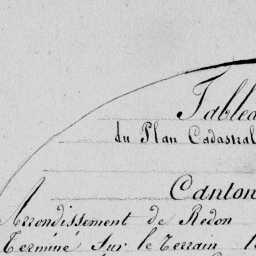 Tablea
du Plan Cadastral
Canton
Arrondissement de Redon
Terminé sur le terrain